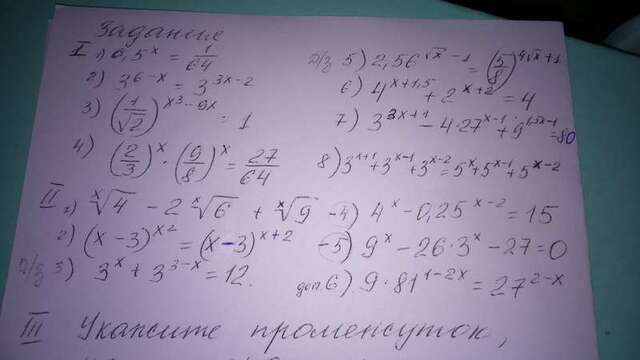 Задание
I 1) 0,5^x = 1/64
2) 3^(6-x) = 3^(3x-2)
3) (1/√2)^(x^3-9x) = 1
4) (2/3)^x · (9/8)^x = 27/64
д/з 5) 2,56^(√x-1) = (5/8)^(4√x+1)
6) 4^(x+1,5) + 2^(x+2) = 4
7) 3^(3x+1) - 4·27^(x-1) + 9^(1,5x-1) = 80
8) 3^(x+1) + 3^(x-1) + 3^(x-2) = 5^x + 5^(x-1) + 5^(x-2)
II 1) ^x√4 - 2 ^x√6 + ^x√9
2) (x-3)^(x^2) = (x-3)^(x+2)
д/з 3) 3^x + 3^(3-x) = 12.
4) 4^x - 0,25^(x-2) = 15
5) 9^x - 26·3^x - 27 = 0
доп 6) 9·81^(1-2x) = 27^(2-x)
III Укажите промежуток,